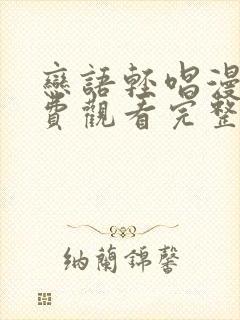 戀語輕唱漫
費觀看完整
納蘭錦馨